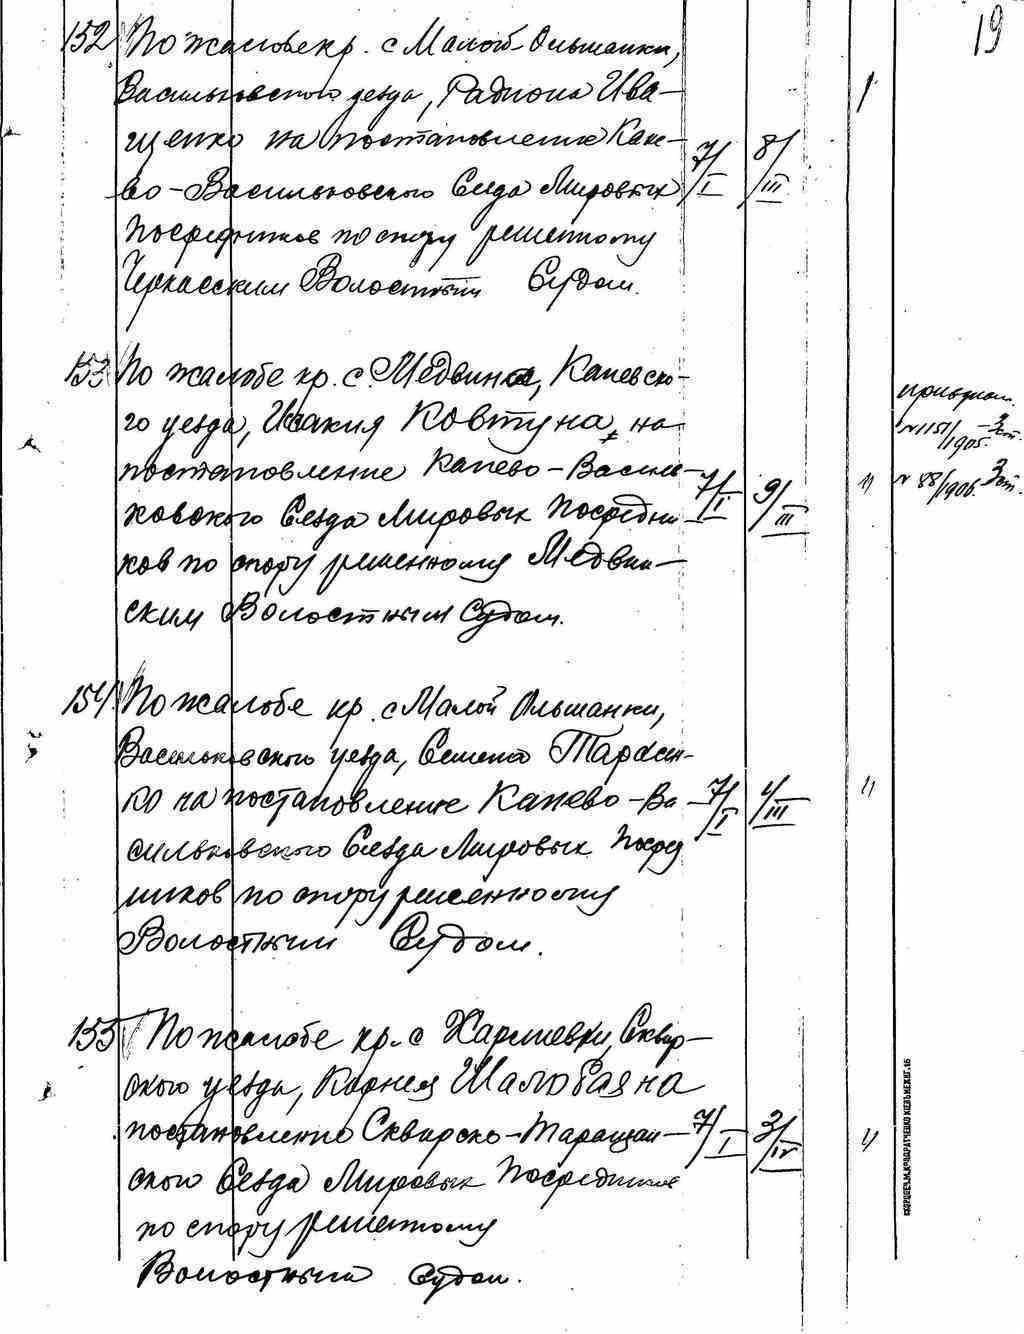 19
152 По жалобе кр. с Малой-Ольшанки,
Васильковского уезда, Радиона Ива-
щенко на постановление Кане-
во-Васильковского Съезда Мировых 7/I 8/III 1
Посредников по спору решенному
Черкасским Волостным Судом.
153 По жалобе кр. с. Медвина, Каневско-
го уезда, Исакия Ковтуна, на
постановление Канево-Василь-
ковского Съезда Мировых Посредни 7/I 9/III "
ков по спору решенному Медвин-
ским Волостным Судом.
№1151/1905.
№ 88/1906.
154. По жалобе кр. с Малой Ольшанки,
Васильковского уезда, Семена Тарасен-
ко на постановление Канево-Ва 7/I 4/III "
сильковского Съезда Мировых Посред
ников по спору решенному
Волостным Судом.
155 По жалобе кр. с Харлиевки, Сквир-
ского уезда, Корнея Шалобая на
постановление Сквирско-Таращан- 7/I 3/IV "
ского Съезда Мировых Посредников
по спору решенному
Волостным Судом.